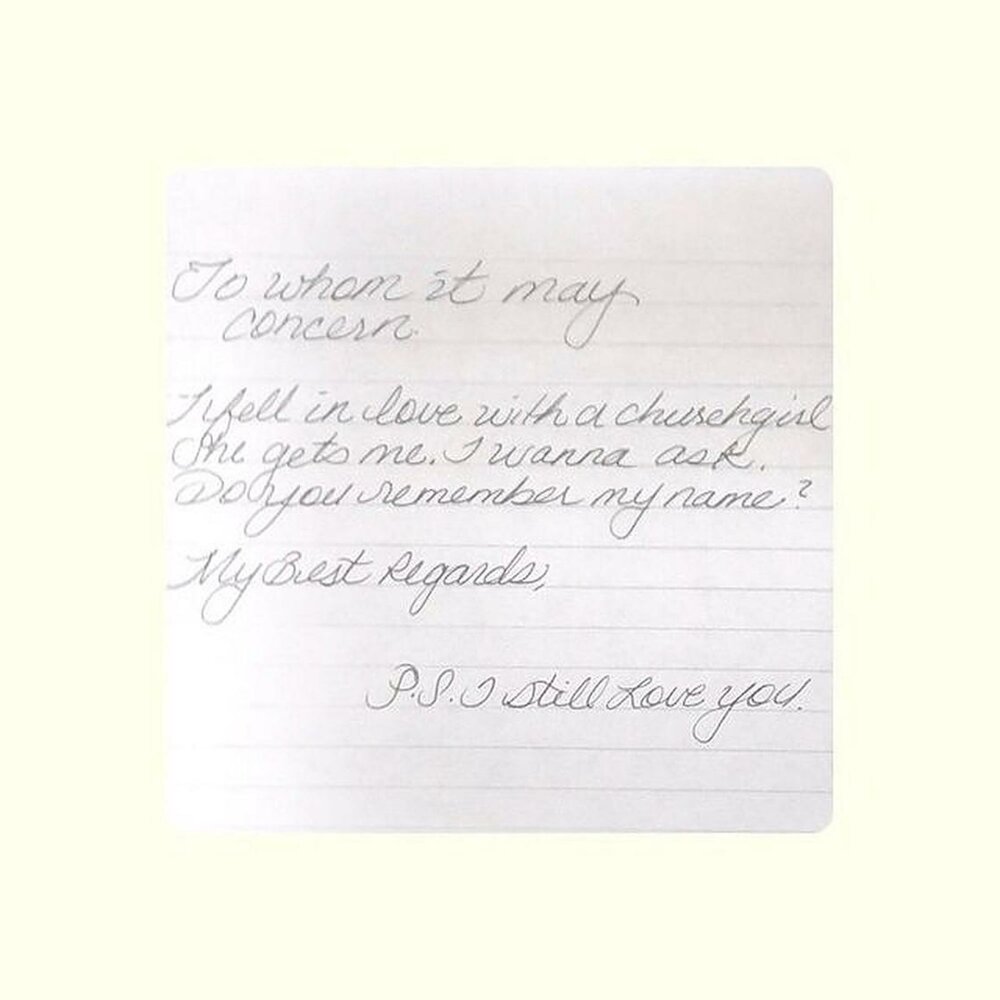 To whom it may
concern.
I fell in love with a churchgirl
She gets me. I wanna ask.
Do you remember my name?
My Best Regards,
P.S. I still Love you.